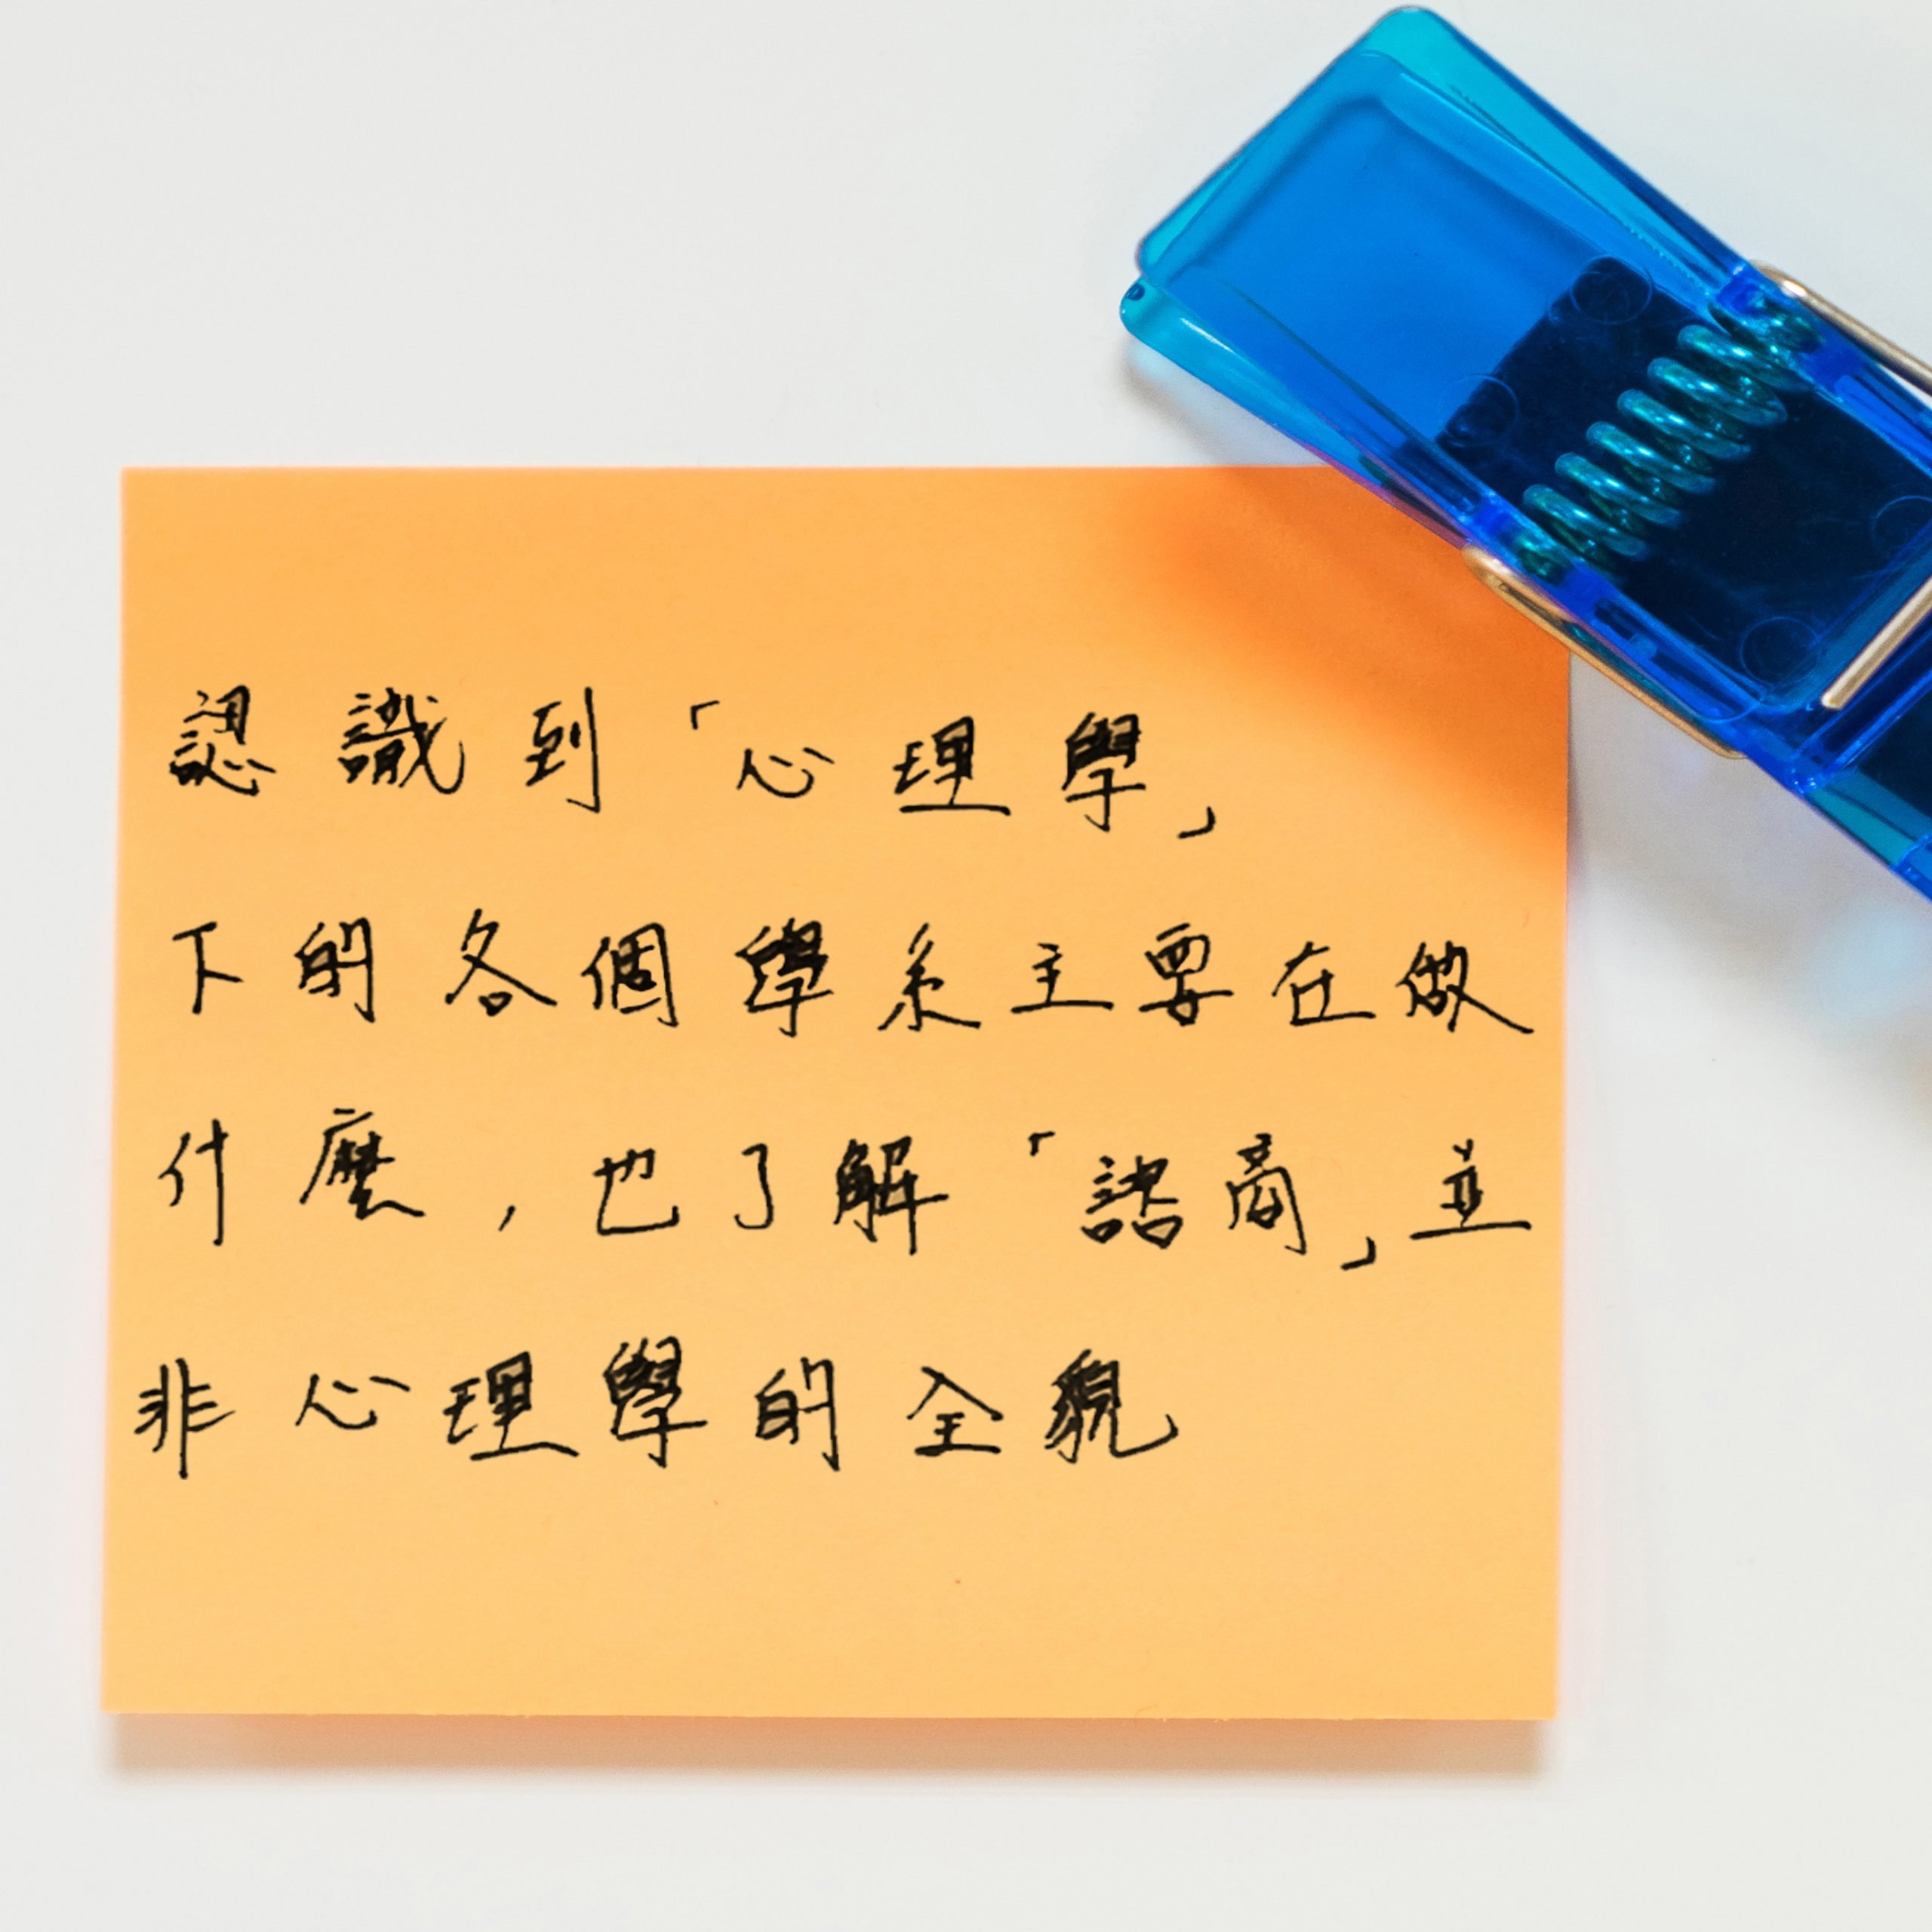 認識到「心理學」
下的各個學系主要在做
什麼，也了解「諮商」並
非心理學的全貌